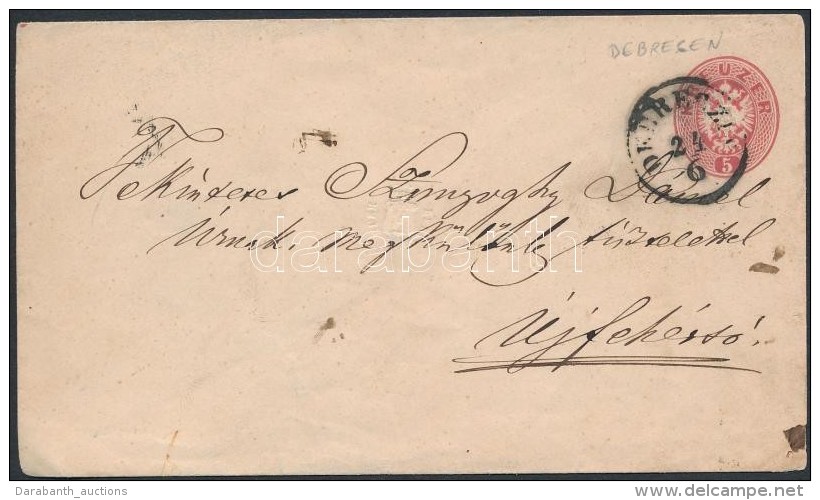 DEBRESEN
KREUZER
5
DEBRECZIN
24
6
Tekintetes Szunyoghy Daniel
Urnak, megkülömb tisztelettel
Újfehértó.
darabanth
Darabanth_auctions
www.delcampe.net